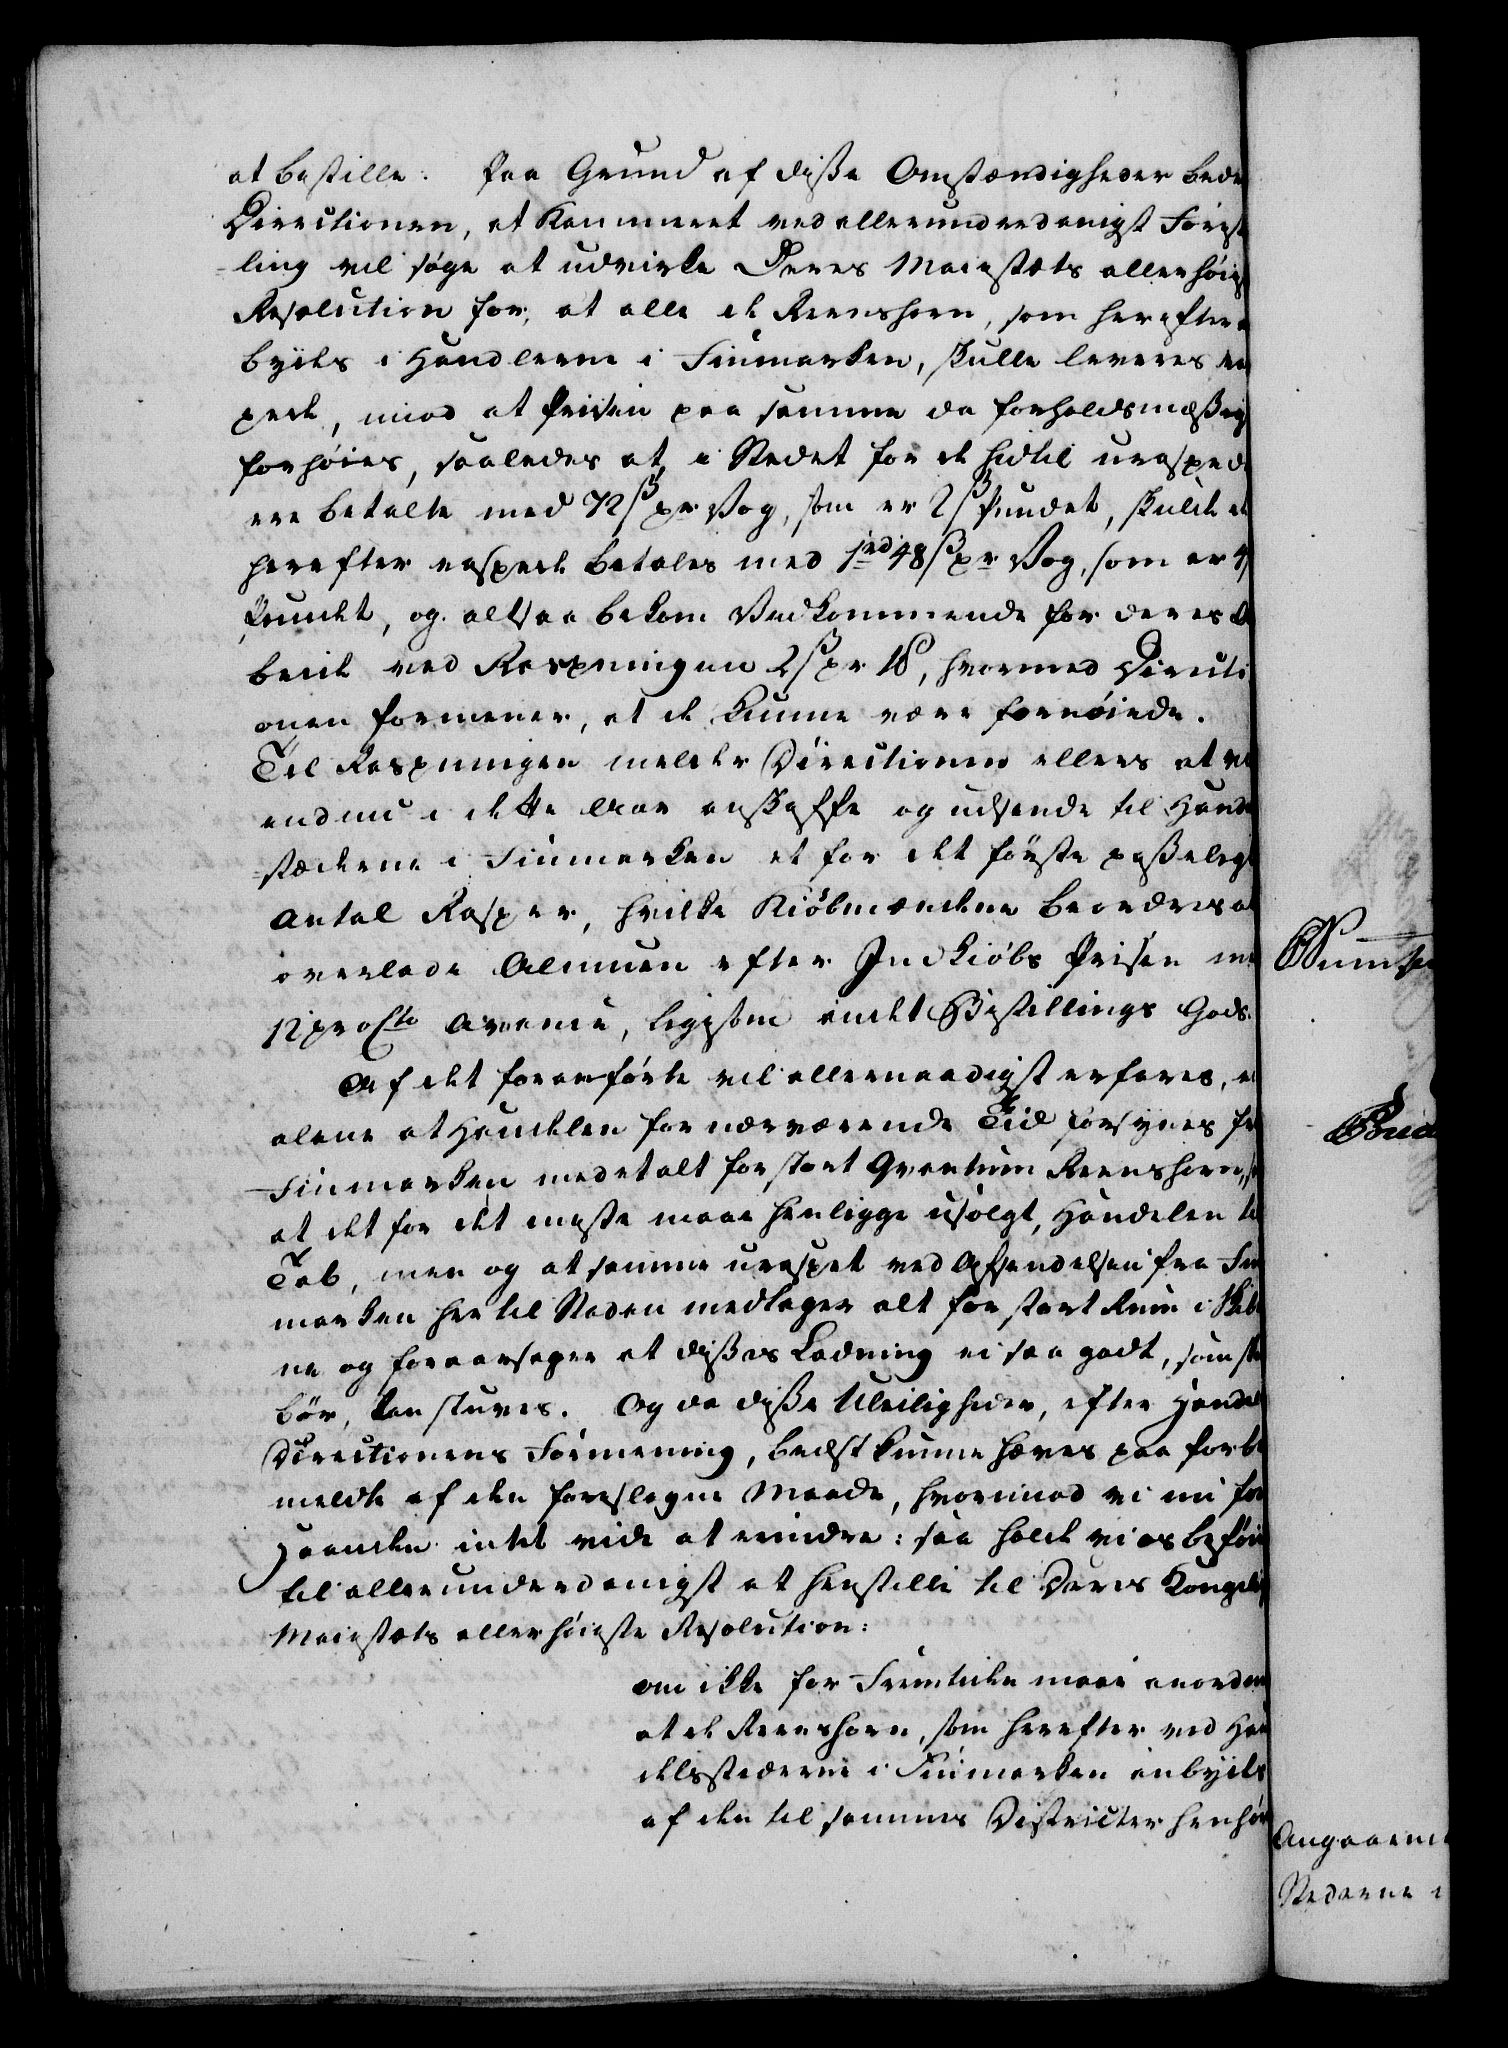 at bestille. Paa Grund af disse Omstændigheder bede
Directionen, at Kammeret ved allerunderdanigst Forest
ling vil søge at udvirke Deres Majestæts allerhøies
Resolution for, at alle de Reenshorn, som herefter
bydes i Handlerne i Finmarken, skulle leveres ra
pede, mod at Prisen paa samme da forholdsmæssig
forhøies, saaledes at, i Stedet for de hidtil uraspede
ere betalte med 72 ß pr Vog, som er 2 ß Pundet, skulde de
herefter raspede betales med 1 rd 48 ß pr Vog, som er 4
Pundet, og altsaa bekom Vedkommende for deres A
beide ved Raspningen 2 ß pr ℔, hvormed Directi
onen formener, at de kunne være fornøiede.
Til Raspningen melder Directionen ellers at vi
endnu i dette Aar anskaffe og udsende til Hande
stæderne i Finmarken et for det første passeligt
Antal Rasper, hvilke Kiøbmændene beordres at
overlade Almuen efter Indkiøbs Prisen me
12 pro Cto Avance, ligesom andet Bestillings Gods.
Af det foranførte vil allernaadigst erfares, ei
alene at Handelen for nærværende Tid forsynes fra
Finmarken med et alt for stort Qvantum Reenshorn, sa
at det for det meste maae henligge usolgt, Handelen til
Tab, men og at samme uraspet ved Afsendelsen fra Fin
marken her til Staden medtager alt for stort Rum i Skibe
ne og foraarsager at disses Ladning ei saa godt, som ske
bør, kan stuves. Og da disse Uleiligheder, efter Handels
Directionens Formening, bedst kunne hæves paa forbe
meldte af den foreslagne Maade, hvorimod vi nu for
Haanden intet vide at erindre: saa holde vi os beføie
til allerunderdanigst at henstille til Deres Kongelig
Majestæts allerhøieste Resolution:
om ikke for Fremtiden maae anordne
at de Reenshorn, som herefter ved Han
delsstæderne i Finmarken indbydes
af den til sammes Districter henhør
Angaaende
Stederne i